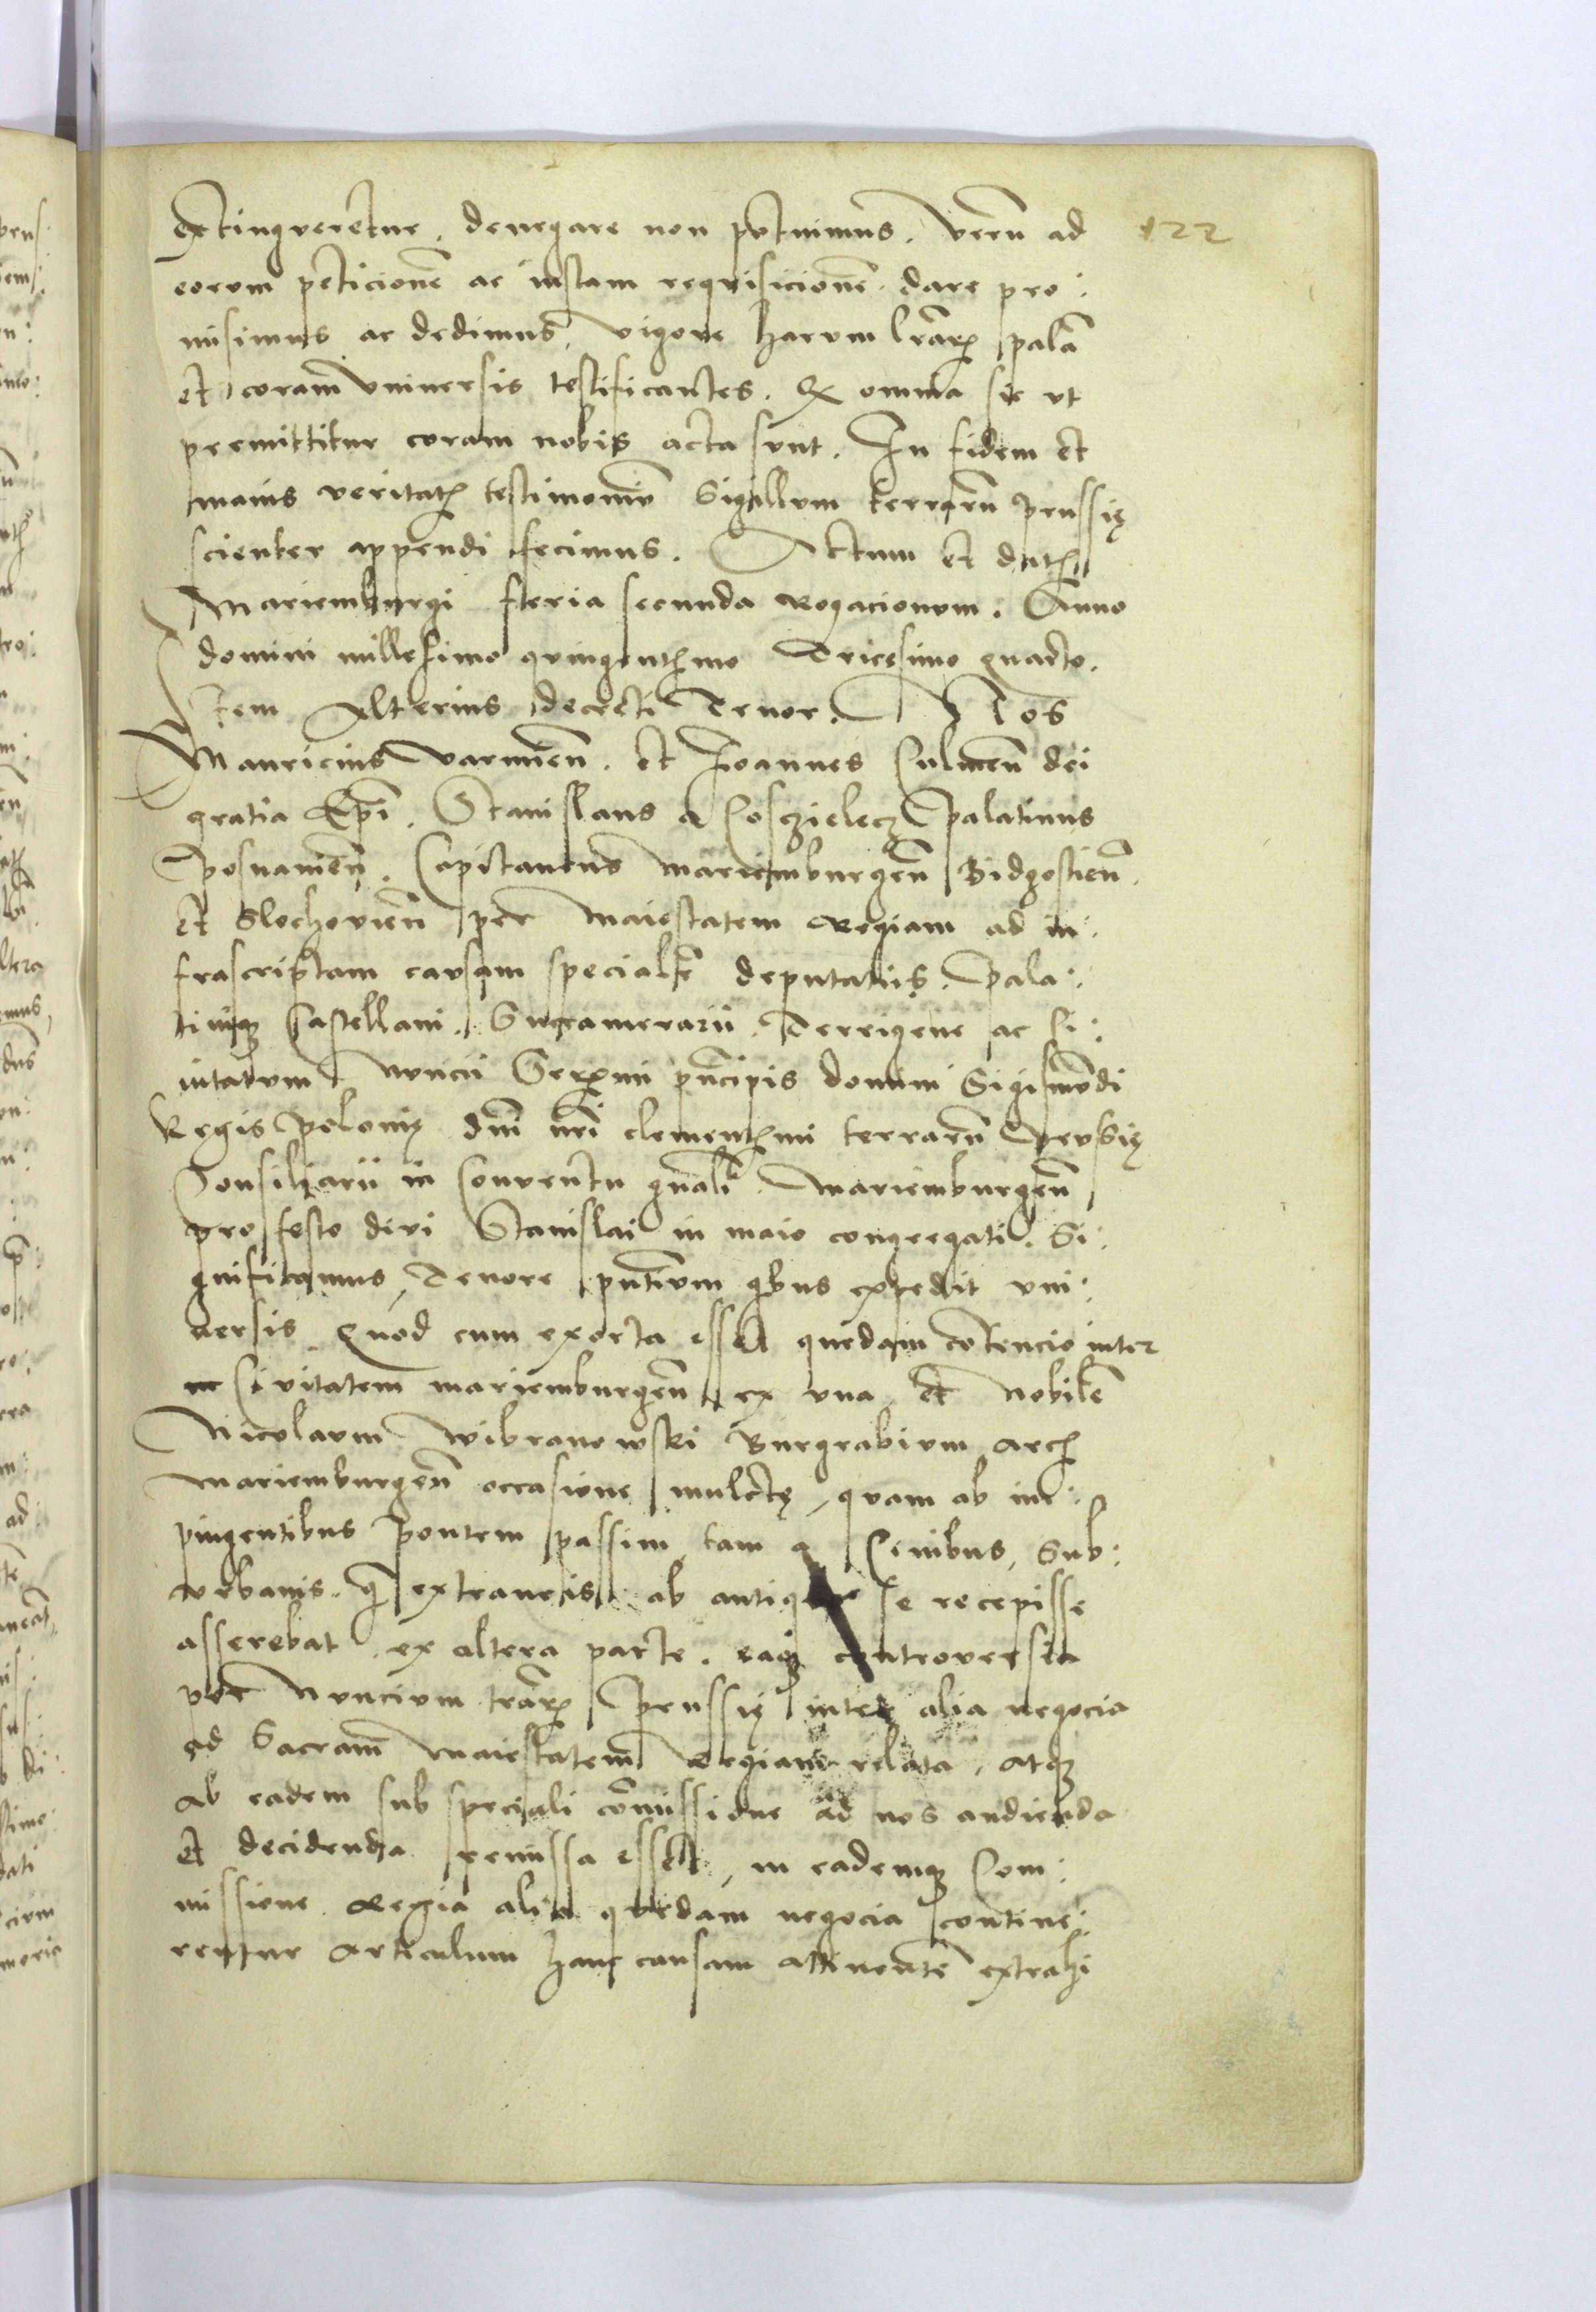 extingveretur. denegare non potuimus. Verū ad 122
eorum peticionē ac iustam reqvisicionē. dare pro:
misimus ac dedimus, vigore harum lrārꝫ palā
et coram vniuersis testificantes. Qꝫ omnia sic vt
premittitur coram nobis acta sunt. In fidem et
maius veritatꝫ testimoniū Sigillum terrarū prussię
scienter appendi fecimus. Actum et datꝫ
Mariemburgi feria secunda Rogacionum. Anno
domini millesimo qvingentꝫmo Tricesimo quarto.
Item Alterius decreti Tenor. Nos
Mauricius Varmien̄. et Joannes Culmen̄ dei
gratia Ep̄i. Stanislaus a Cosczielecz palatinus
Posnanien̄. Capitaneus Mariemburgen̄ Bidgostien̄.
et Slochovien̄ per Maiestatem Regiam ad in:
frascriptam causam specialr̄ deputatus. Pala:
tinꝗꝫ Castellani. Succamerarii. Terrigene ac Ci:
uitatum Nuncii Serꝫmi prīcipis domini Sigismūdi
Regis Polonię dn̄i nr̄i clementꝫmi terrarū Prvssię
Consiliarii in Conventu gn̄ali Mariemburgen̄
pro festo divi Stanislai in maio congregati. Si:
gnificamus, Tenore pn̄tium qbus expedit vni:
uersis Quod cum exorta esset quedam cōtencio inter
Civitatem mariemburgen̄ ex vna et Nobilē
Nicolaum Wibranowski Burgrabium arcꝫ
Mariemburgen̄ occasione mulctę, quam ab im:
pingentibus pontem passim, tam a Civibus, Sub:
vrbanis. q̄ extraneis ab antiquo se recepisse
asserebat. ex altera parte. eaqꝫ controversia
per Nuncium trārꝫ Prussię inter alia negocia
ad Sacram Maiestatem Regiam relata, atqꝫ
Ab eadem sub speciali cōmissione ad nos audienda
et decidenda remissa esset, in eademqꝫ Com:
missione Regia alia quedam negocia contine:
rentur Articulum hanc causam attinentē extrahi